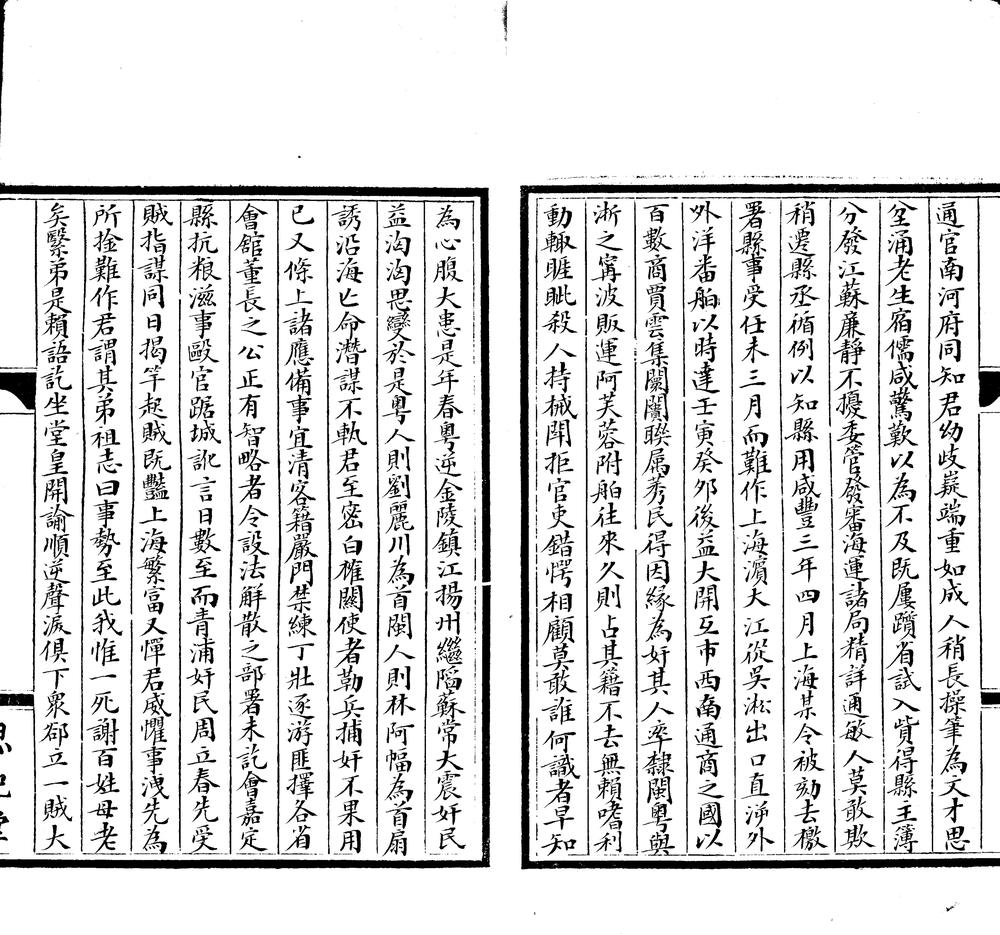 通官南河府同知君幼歧嶷端重如成人稍長操筆為文才思
坌涌老生宿儒咸驚歎以為不及既屢躓省試入貲得縣主簿
分發江蘇廉靜不擾委管發審海運諸局精詳通敏人莫敢欺
稍遷縣丞循例以知縣用咸豐三年四月上海某令被劾去檄
署縣事受任未三月而難作上海濱大江從吳淞出口直渉外
外洋番舶以時達壬寅癸夘後益大開互市西南通商之國以
百數商賈雲集闤闠聯属莠民得因緣為奸其人率隸閩粤與
浙之寗波販運阿芙蓉附舶往來久則占其籍不去無賴嗜利
動輙睚眦殺人持械鬥拒官吏錯愕相顧莫敢誰何識者早知
為心腹大患是年春粤逆金陵鎮江揚州繼䧟蘇常大震奸民
益洶洶思變於是粤人則劉麗川為首閩人則林阿幅為首扇
誘沿海亡命潛謀不軌君至密白榷關使者勒兵捕奸不果用
已又條上諸應備事宜清客籍嚴門禁練丁壯逐游匪擇各省
會舘董長之公正有智略者令設法觧散之部署未訖會嘉定
縣抗粮滋事毆官踞城訛言日數至而青浦奸民周立春先受
賊指謀同日揭竿起賊既豔上海繁富又憚君威懼事洩先為
所捦難作君謂其弟祖志曰事勢至此我惟一死謝百姓母老
矣繄弟是賴語訖坐堂皇開諭順逆聲淚俱下衆郤立一賊大